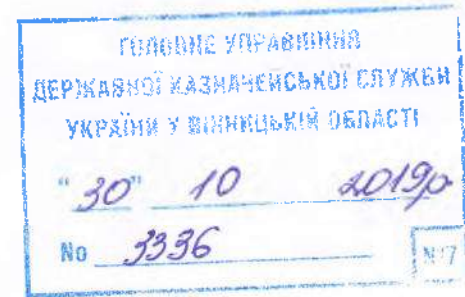 ГОЛОВНЕ УПРАВЛІННЯ
ДЕРЖАВНОЇ КАЗНАЧЕЙСЬКОЇ СЛУЖБИ
УКРАЇНИ У ВІННИЦЬКІЙ ОБЛАСТІ
"30" 10 2019р
No 3336
N 7